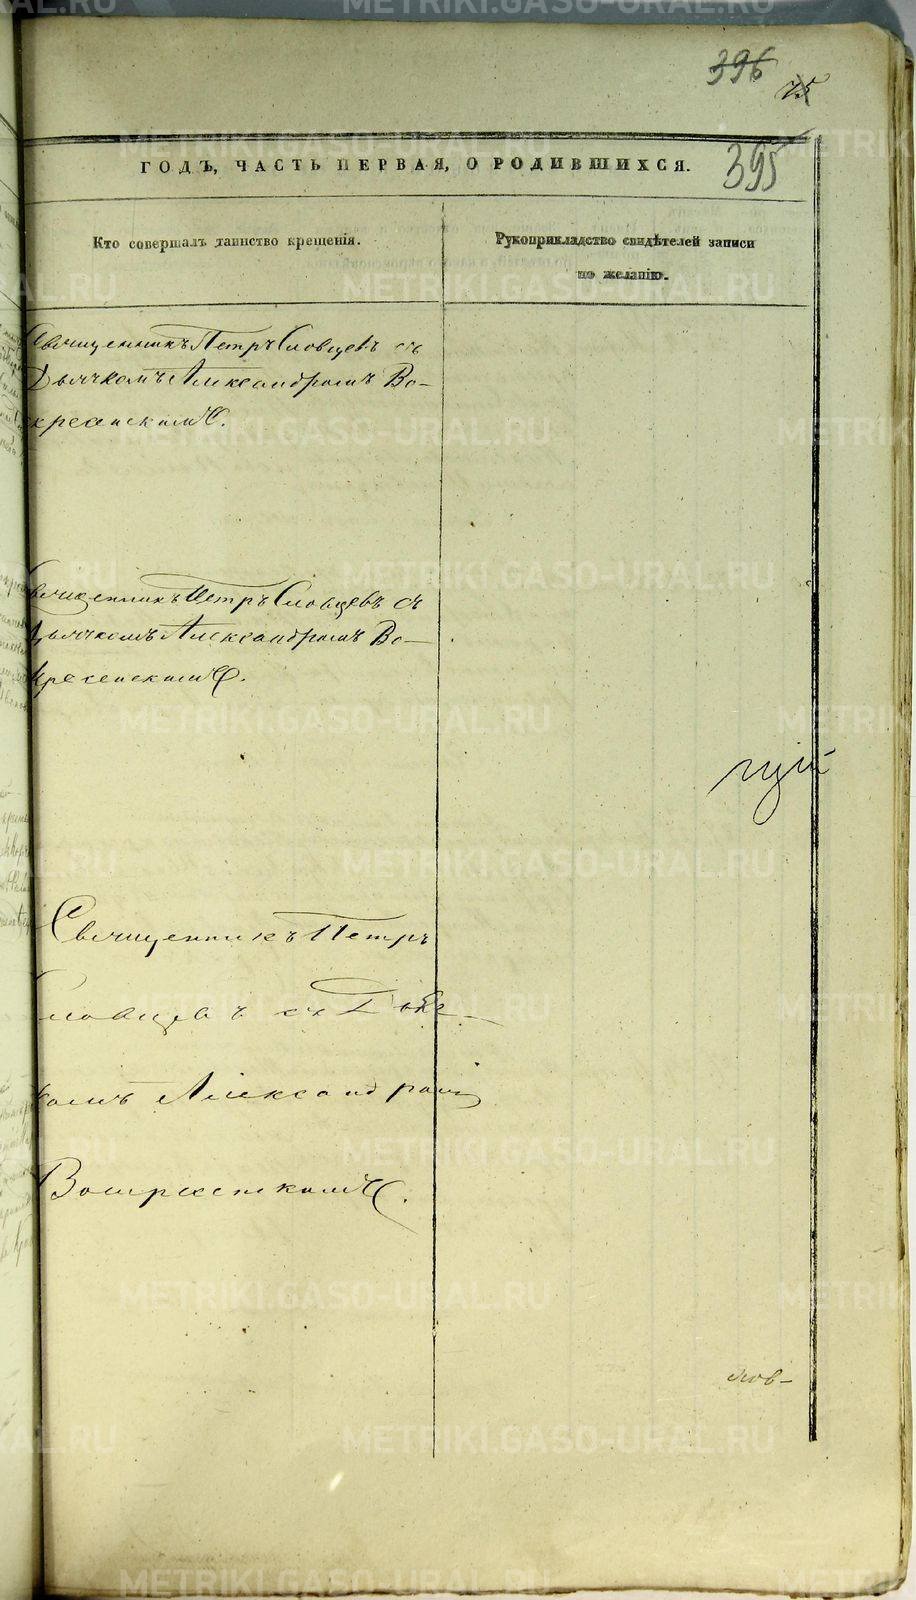 396
75
395
ГОДЪ, ЧАСТЬ ПЕРВАЯ, О РОДИВШИХСЯ.
Кто совершалъ таинство крещенія.
Рукоприкладство свидѣтелей записи
по желанію.
Священникъ Петръ Словцевъ съ
Дьячкомъ Александромъ Во-
скресенскимъ.
Священникъ Петръ Словцевъ съ
Дьячкомъ Александромъ Во-
скресенскимъ.
Священникъ Петръ
Словцевъ съ Дьяч-
комъ Александромъ
Воскресенскимъ.
METRIKI.GASO-URAL.RU